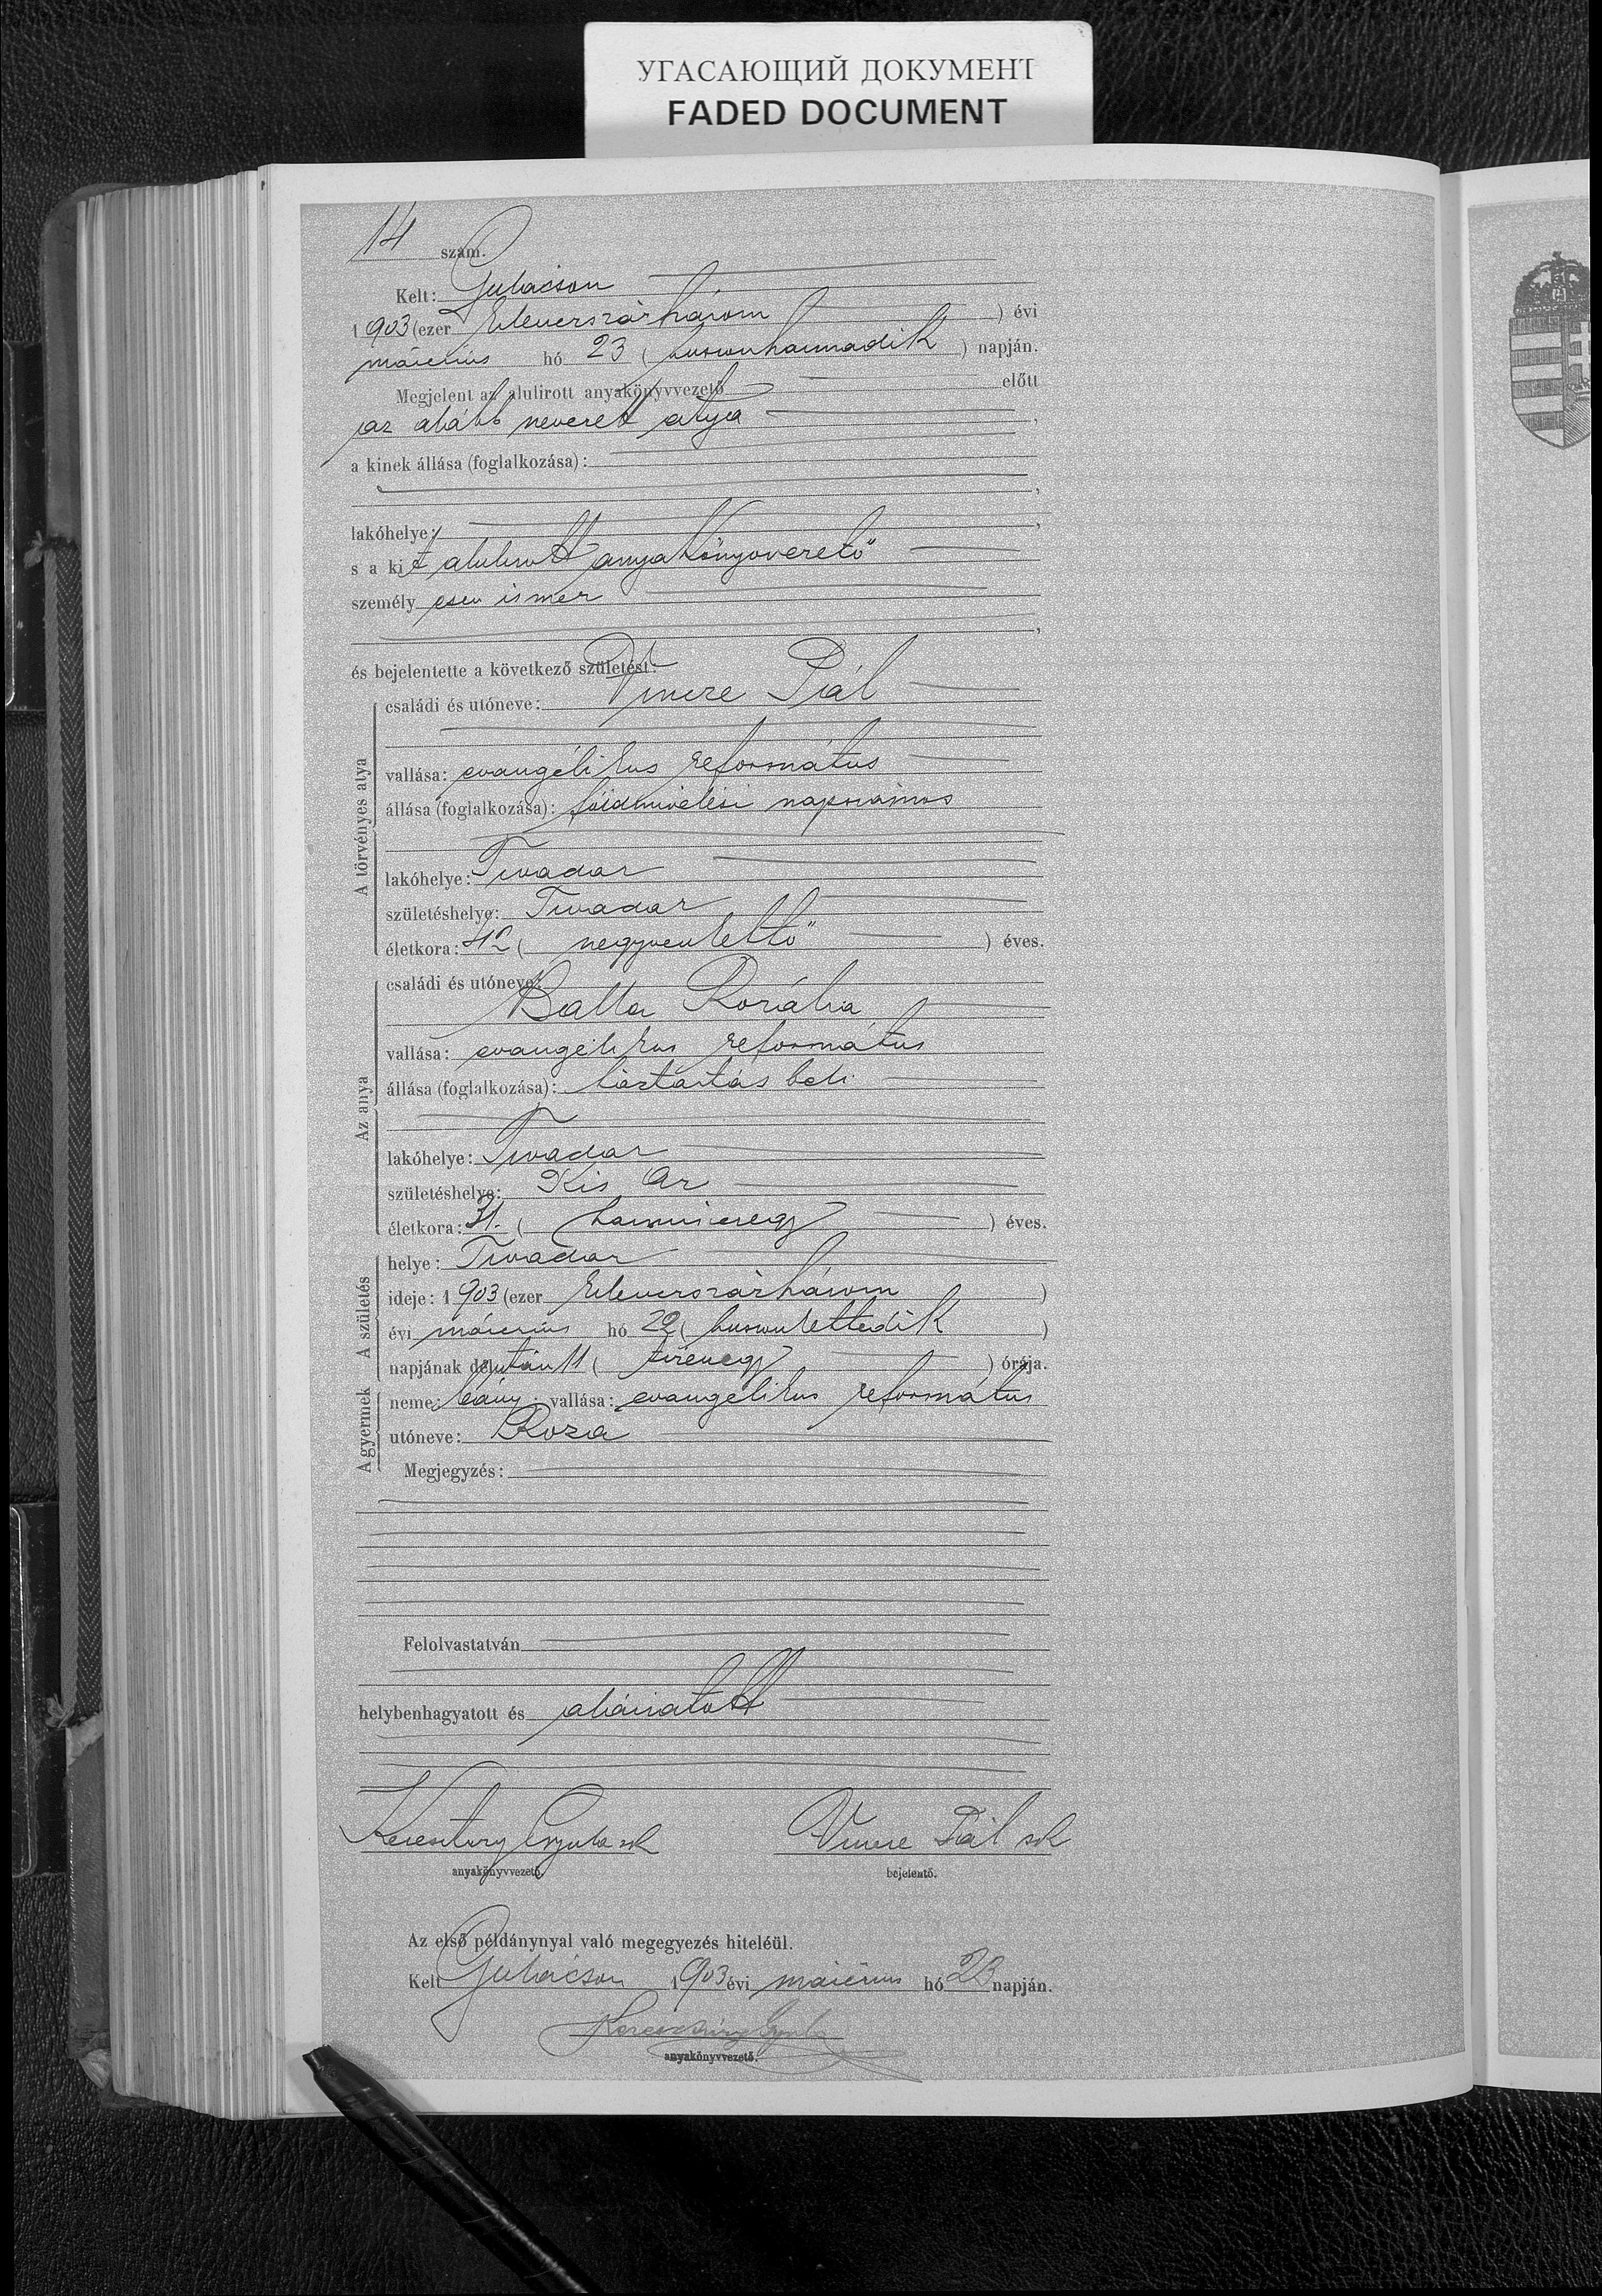 УГАСАЮЩИЙ ДОКУМЕНТ
FADED DOCUMENT
14 szám.
Kelt: Gulácson
1903 (ezer kilenczszázhárom ) évi
márczius hó 23 ( huszonharmadik ) napján.
Megjelent az alulirott anyakönyvvezető előtt
az alább nevezett atya ,
a kinek állása (foglalkozása):
,
lakóhelye: ,
s a kit alulirott anyakönyvvezető
személyesen ismer
,
és bejelentette a következő születést:
A törvényes atya
családi és utóneve: Vincze Pál
vallása: evangélikus református
állása (foglalkozása): földmivelési napszámos
lakóhelye: Tivadar
születéshelye: Tivadar
életkora: 42 ( negyvenkettő ) éves.
Az anya
családi és utóneve:
Balla Rozália
vallása: evangélikus református
állása (foglalkozása): háztartásbeli
lakóhelye: Tivadar
születéshelye: Kis Ar
életkora: 31. ( harminczegy ) éves.
A születés
helye: Tivadar
ideje: 1903 (ezer kilenczszázhárom )
évi márczius hó 22 ( huszonkettedik )
napjának délután 11 ( tizenegy ) órája.
A gyermek
neme: leány; vallása: evangélikus református
utóneve: Roza
Megjegyzés:
Felolvastatván
helybenhagyatott és aláiratott
Keresztury Gyula sk Vincze Pál sk
anyakönyvvezető. bejelentő.
Az első példánynyal való megegyezés hiteléül.
Kelt Gulácson 1903 évi márczius hó 23 napján.
Keresztury Gyula
anyakönyvvezető.